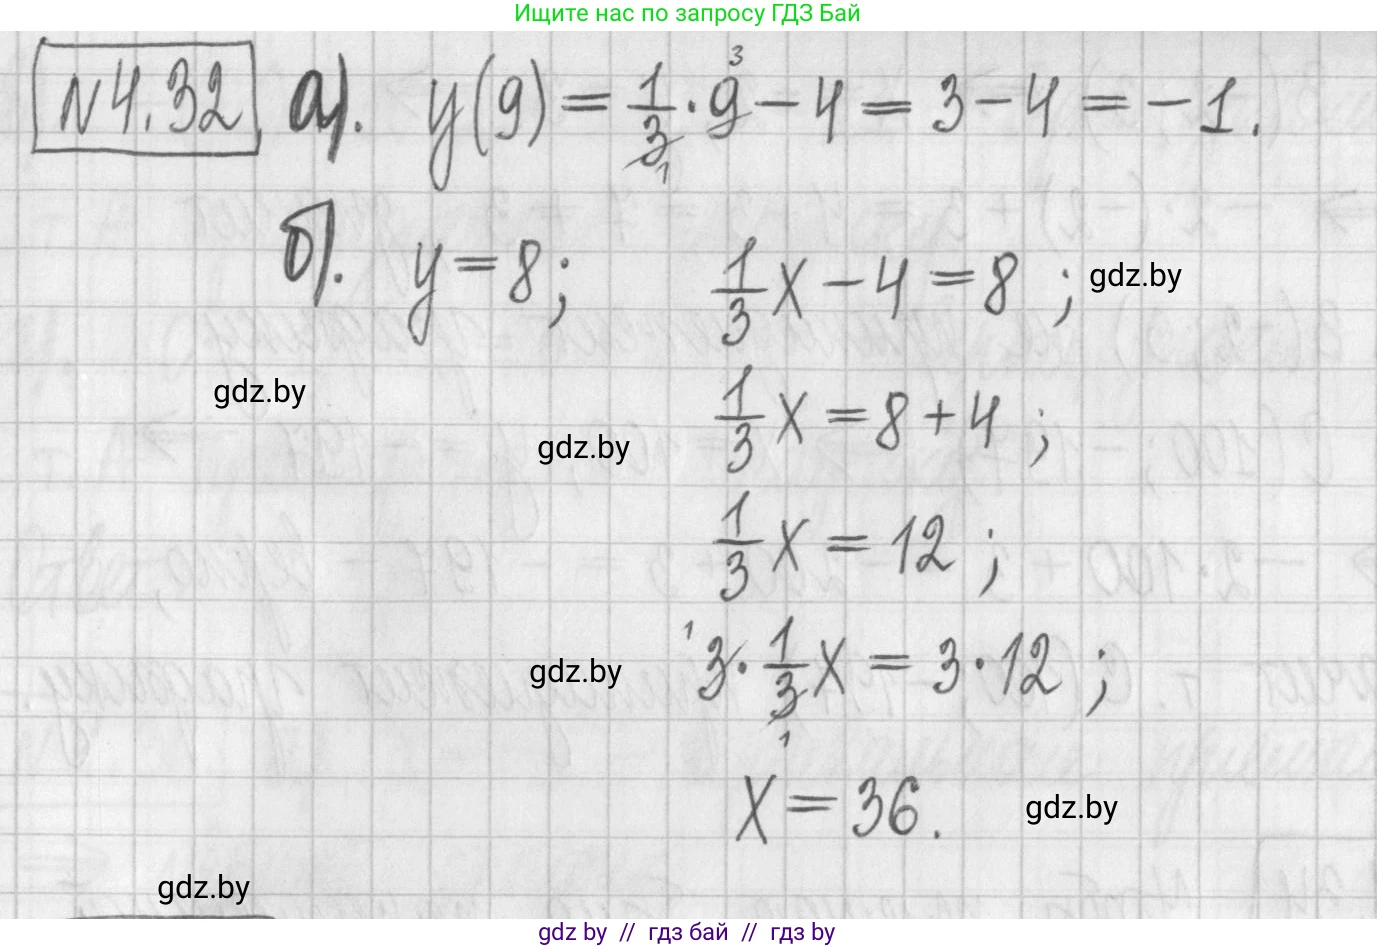 Ищите нас по запросу ГДЗ Бай
№4.32 а). y(9) = 1/3 · 9 3 − 4 = 3 − 4 = −1.
1
б). y = 8; 1/3 x − 4 = 8 ; gdz.by
gdz.by
1/3 x = 8 + 4 ;
gdz.by
1/3 x = 12 ;
gdz.by 1 3 · 1/3 x = 3 · 12 ;
1
x = 36. gdz.by
gdz.by
gdz by // гдз бай // гдз by